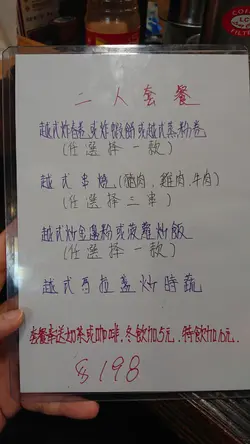 二人套餐
越式炸春卷或炸軟餅或越式蒸粉卷
(任選擇一款)
越式串燒 (豬肉、雞肉、牛肉)
(任選擇三串)
越式炒金邊粉或菠蘿炒飯
(任選擇一款)
越式馬拉盞炒時蔬
套餐奉送奶茶或咖啡. 冬飲加5元. 特飲加10元.
$198